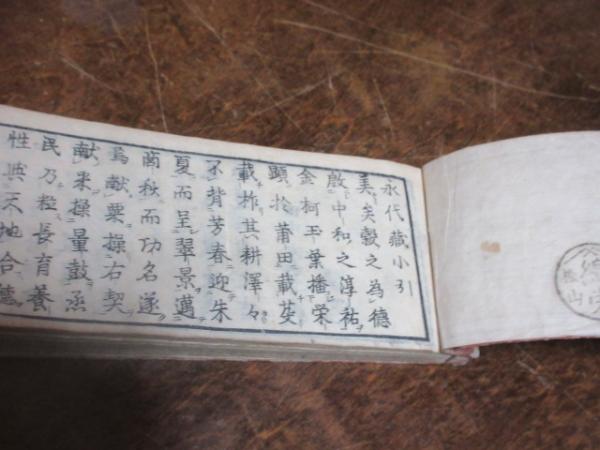 永代藏小引
美矣穀之為德
啟中和之淳祐
金柯玉葉播栄
顕於莆田載芟
載柞其耕澤々
不背芳春迎朱
夏而呈翠景邁
商秋而功名遂
為献粟操右契
献米操量鼓烝
民乃粒長育養
性與天地合德
松山